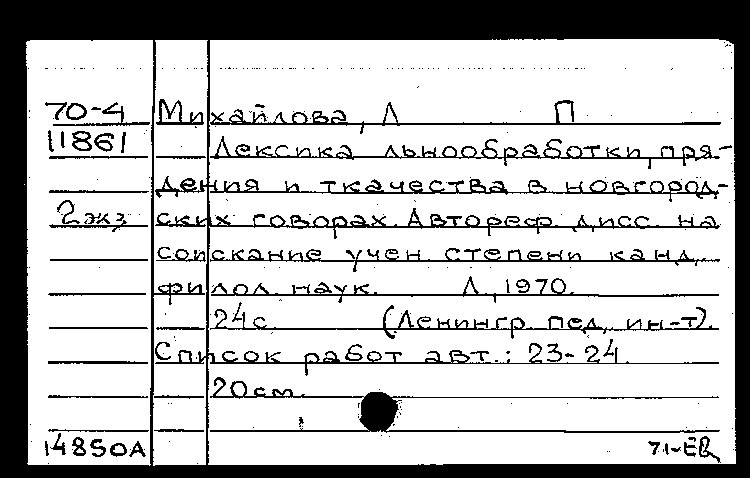 70-4 Михайлова, Л П
11861 Лексика льнообработки, пря-
дения и ткачества в новгород-
2 экз ских говорах. Автореф. дисс. на
соискание учен. степени канд.
филол. наук. Л., 1970.
24 с. (Ленингр. пед. ин-т).
Список работ авт.: 23-24.
20 см.
14850А